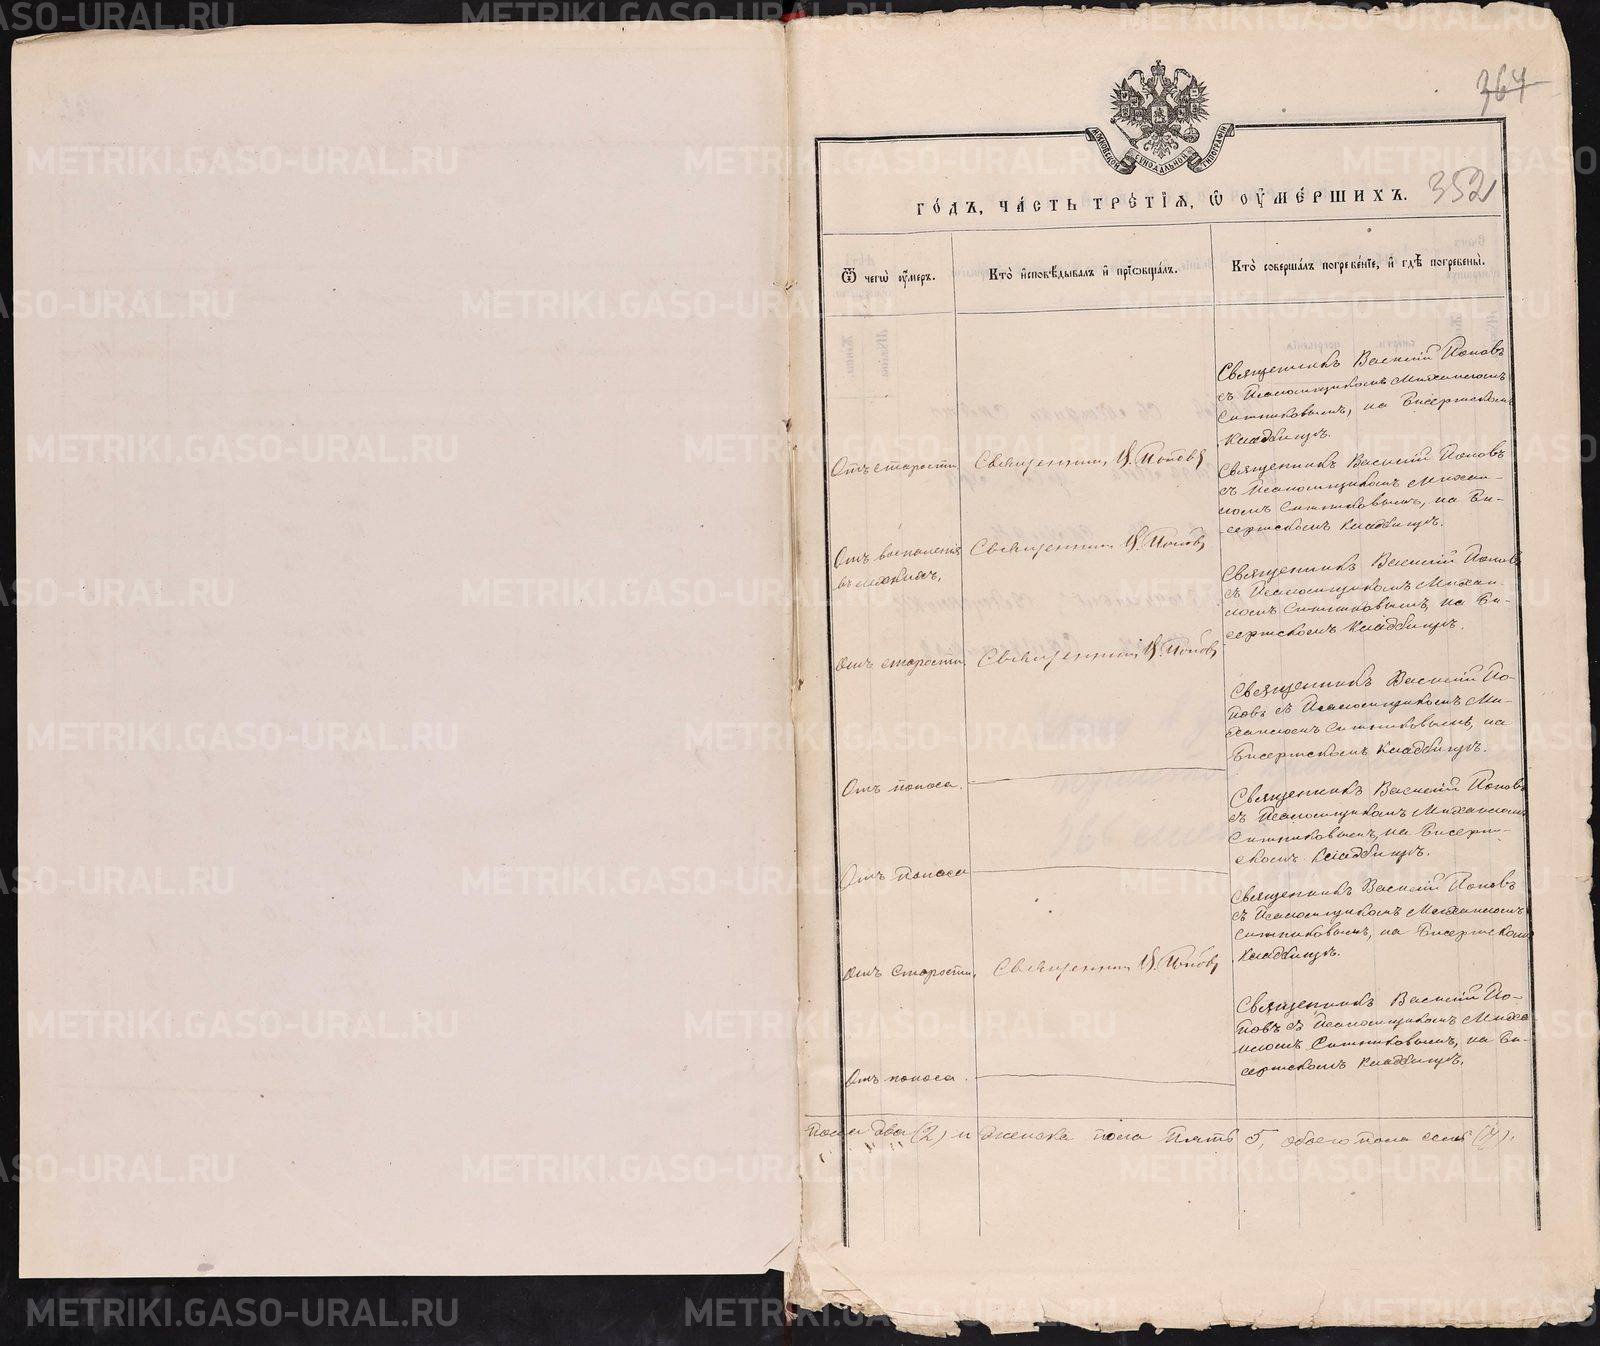 364
МОСКОВСКОЙ СѴНОДАЛЬНОЙ ТИПОГРАФІИ
ГО́ДЪ, ЧА́СТЬ ТРЕ́ТІѦ, Ѡ҆ ОУ҆МЕ́РШИХЪ.
352
Ѿ чегѡ̀ оу҆́меръ.
Кто̀ и҆сповѣ́дывалъ и҆ прїѡбща́лъ.
Кто̀ соверша́лъ погребе́нїе, и҆ гдѣ̀ погребены̀.
Священникъ Василій Поповъ
съ Псаломщикомъ Михаиломъ
Ситниковымъ, на Бисертскомъ
Кладбищѣ.
Отъ старости
Священникъ В. Поповъ
Священникъ Василій Поповъ
съ Псаломщикомъ Михаи-
ломъ Ситниковымъ, на Би-
сертскомъ Кладбищѣ.
Отъ воспаленія
въ легкихъ,
Священникъ В. Поповъ
Священникъ Василій Поповъ
съ Псаломщикомъ Михаи-
ломъ Ситниковымъ, на Би-
сертскомъ Кладбищѣ.
Отъ старости.
Священникъ В. Поповъ
Священникъ Василій По-
повъ съ Псаломщикомъ Ми-
хаиломъ Ситниковымъ, на
Бисертскомъ Кладбищѣ.
Отъ поноса.
Священникъ Василій Поповъ
съ Псаломщикомъ Михаиломъ
Ситниковымъ, на Бисерт-
скомъ Кладбищѣ.
Отъ поноса
Священникъ Василій Поповъ
съ Псаломщикомъ Михаиломъ
Ситниковымъ, на Бисертскомъ
Кладбищѣ.
Отъ старости,
Священникъ В. Поповъ
Священникъ Василій По-
повъ съ Псаломщикомъ Михаи-
ломъ Ситниковымъ, на Би-
сертскомъ Кладбищѣ.
Отъ поноса.
пола два (2) и женска пола пять 5, обоего пола семь (7).
METRIKI.GASO-URAL.RU